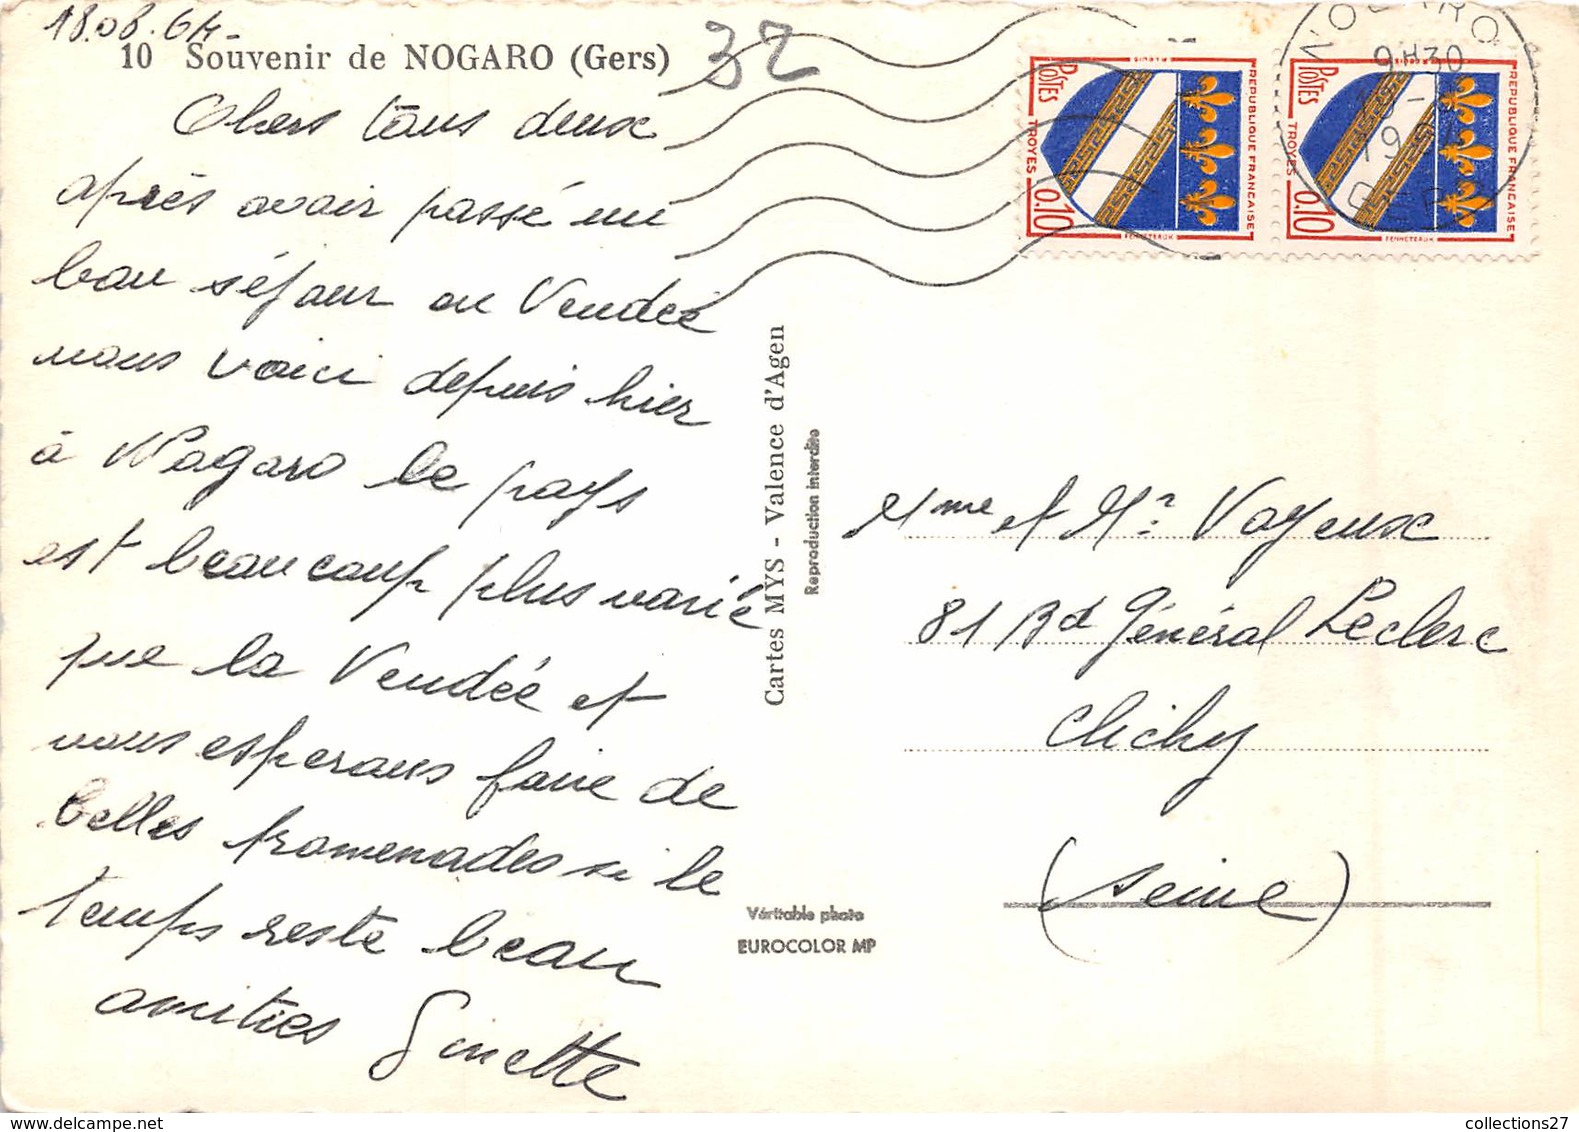 18.08.64-
10 Souvenir de NOGARO (Gers)
32
Chers tous deux
après avoir passé un
bon séjour en Vendée
nous voici depuis hier
à Nogaro le pays
est beaucoup plus varié
que la Vendée et
nous esperons faire de
belles promenades si le
temps reste beau
amitiés Ginette
Cartes MYS - Valence d'Agen
Reproduction interdite
Véritable photo
EUROCOLOR MP
POSTES
REPUBLIQUE FRANCAISE
TROYES
0,10
POSTES
REPUBLIQUE FRANCAISE
TROYES
0,10
NOGARO
9H30
GERS
Mme et Mr. Voyeux
81 Bd Général Leclerc
Clichy
(Seine)
collections27